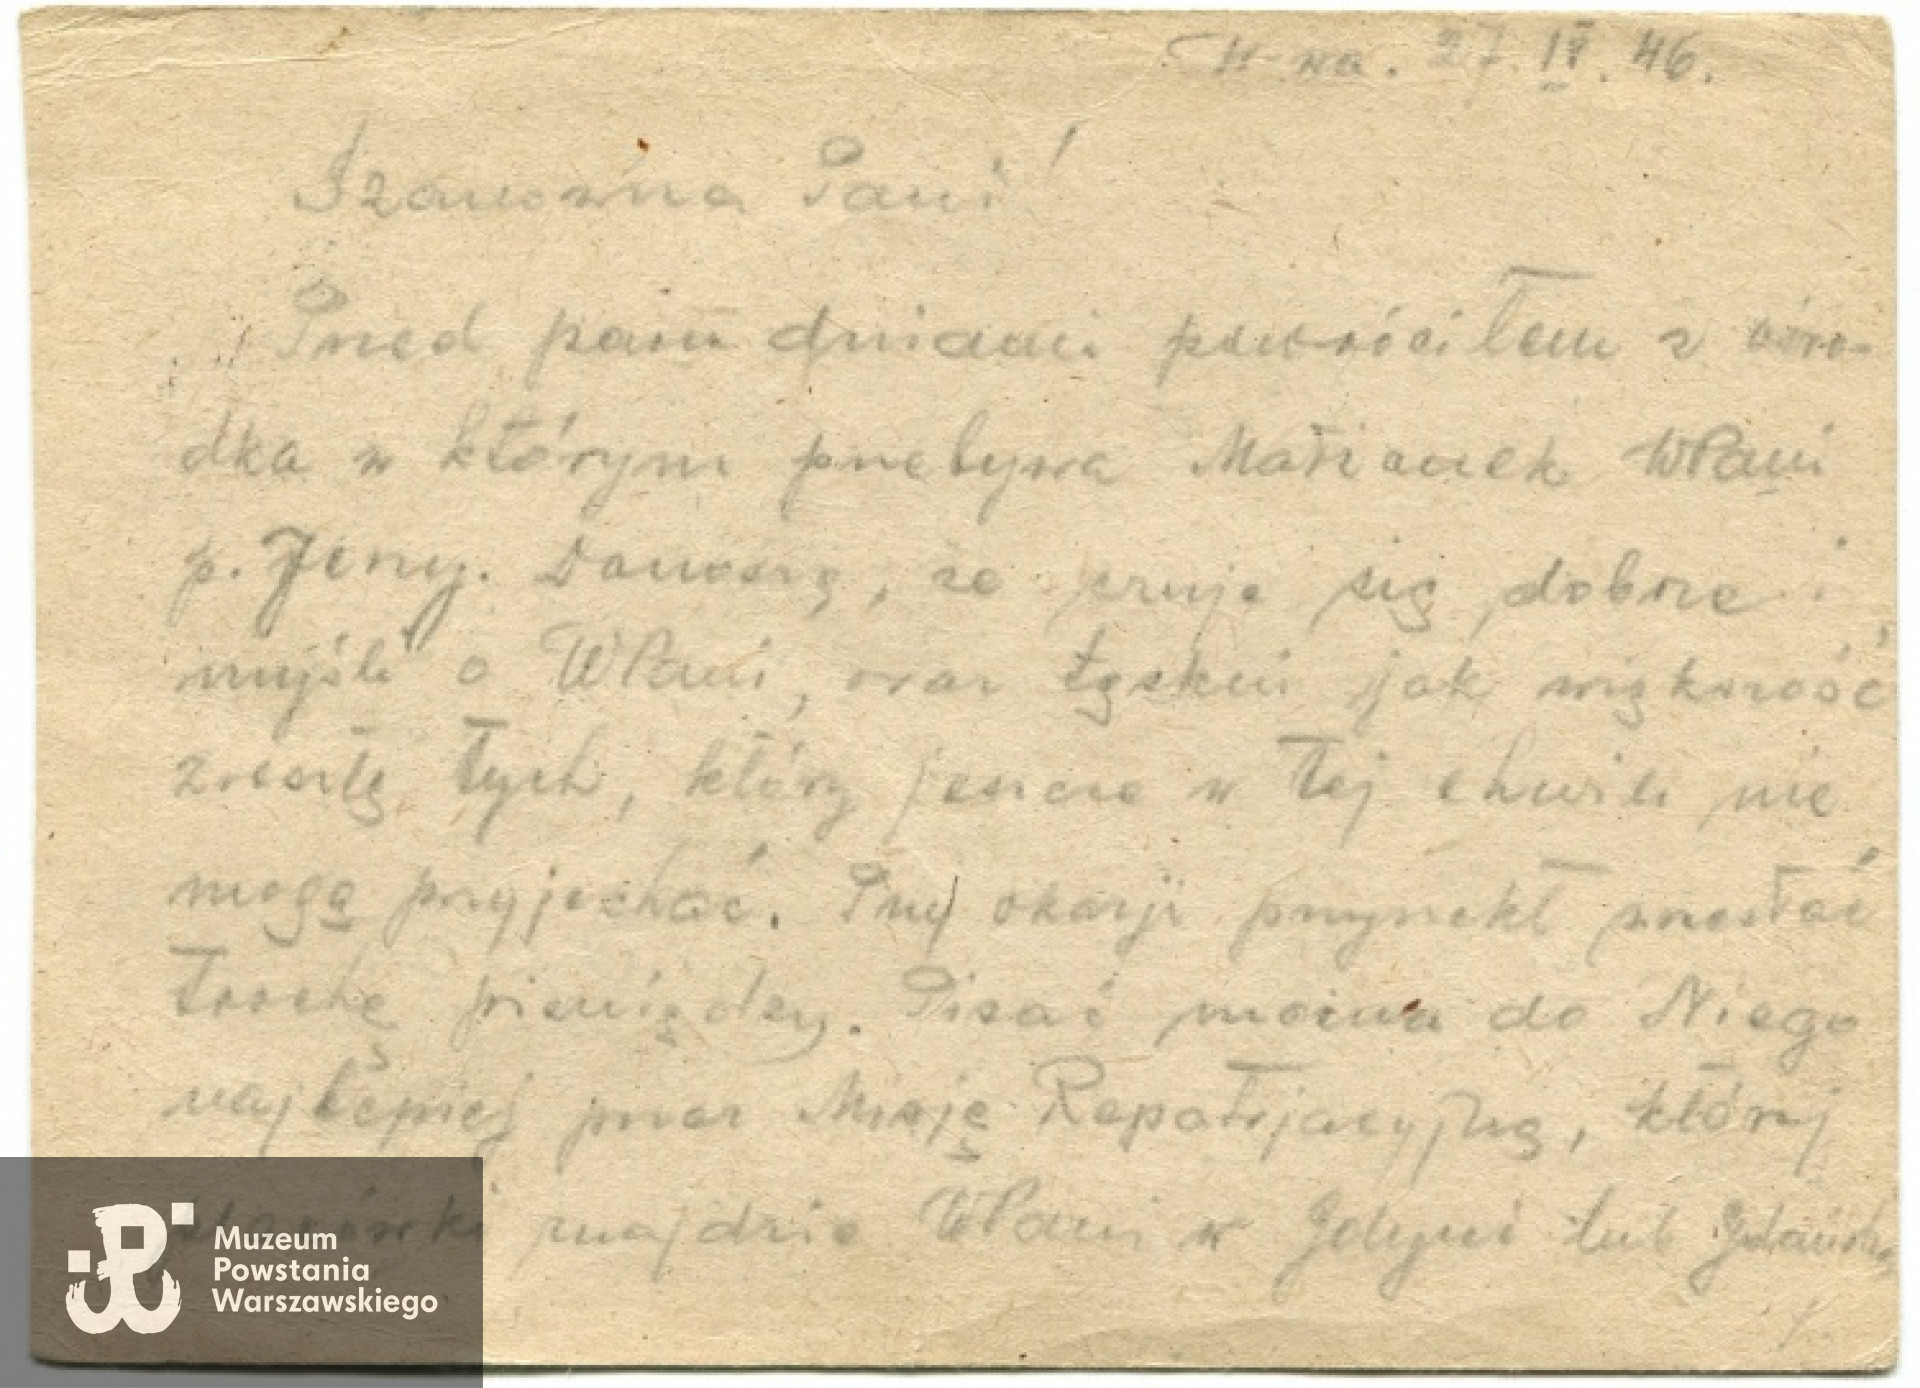 W-wa. 27.IV.46.
Szanowna Pani!
Przed paru dniami powróciłem z ośro-
dka w którym przebywa Małżonek WPani
p. Jerzy. Donoszę, że czuje się dobrze i
myśli o WPani, oraz tęskni jak większość
zresztą tych, którzy jeszcze w tej chwili nie
mogą przyjechać. Przy okazji przyrzekł przesłać
trochę pieniędzy. Pisać można do Niego
najlepiej przez Misję Repatrjacyjną, której
placówki znajdzie WPani w Gdyni lub Gdańsku
Muzeum
Powstania
Warszawskiego